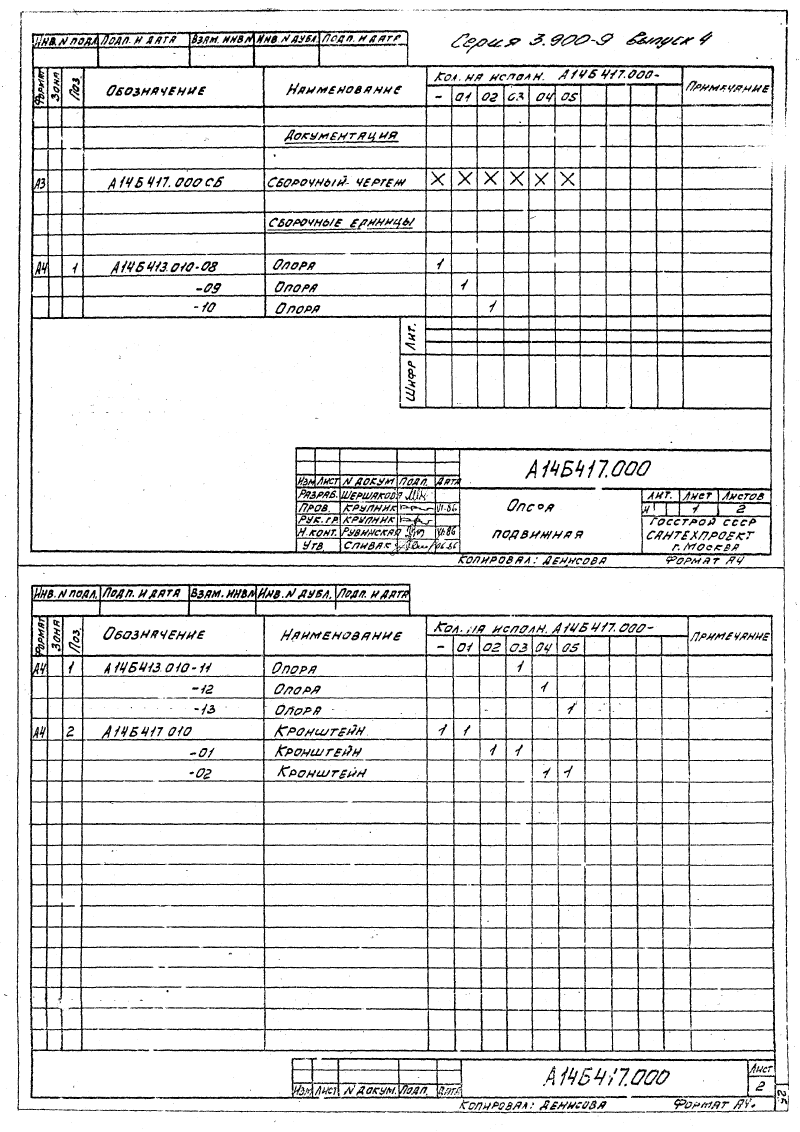 Серия 3.900-9 Выпуск 4
Инв. N подл. Подп. и дата Взам. инв. N Инв. N дубл. Подп. и дата
Формат Зона Поз. Обозначение Наименование Кол. на исполн. А14Б417.000- Примечание
- 01 02 03 04 05
Документация
А3 А14Б417.000 СБ Сборочный чертеж X X X X X X
Сборочные единицы
А4 1 А14Б413.010-08 Опора 1
-09 Опора 1
-10 Опора 1
Лит.
Шифр
А14Б417.000
Изм Лист N докум. Подп. Дата
Разраб. Шершакова
Пров. Крупник VI.86
Рук. гр. Крупник
Н. конт. Рувинская VI.86
Утв. Спивак 06.86
Опора
подвижная
Лит. Лист Листов
И 1 2
Госстрой СССР
Сантехпроект
г. Москва
Копировал: Денисова Формат А4
Инв. N подл. Подп. и дата Взам. инв. N Инв. N дубл. Подп. и дата
Формат Зона Поз. Обозначение Наименование Кол. на исполн. А14Б417.000- Примечание
- 01 02 03 04 05
А4 1 А14Б413.010-11 Опора 1
-12 Опора 1
-13 Опора 1
А4 2 А14Б417.010 Кронштейн 1 1
-01 Кронштейн 1 1
-02 Кронштейн 1 1
Изм Лист N докум. Подп. Дата
А14Б417.000
Лист
2
Копировал: Денисова Формат А4.